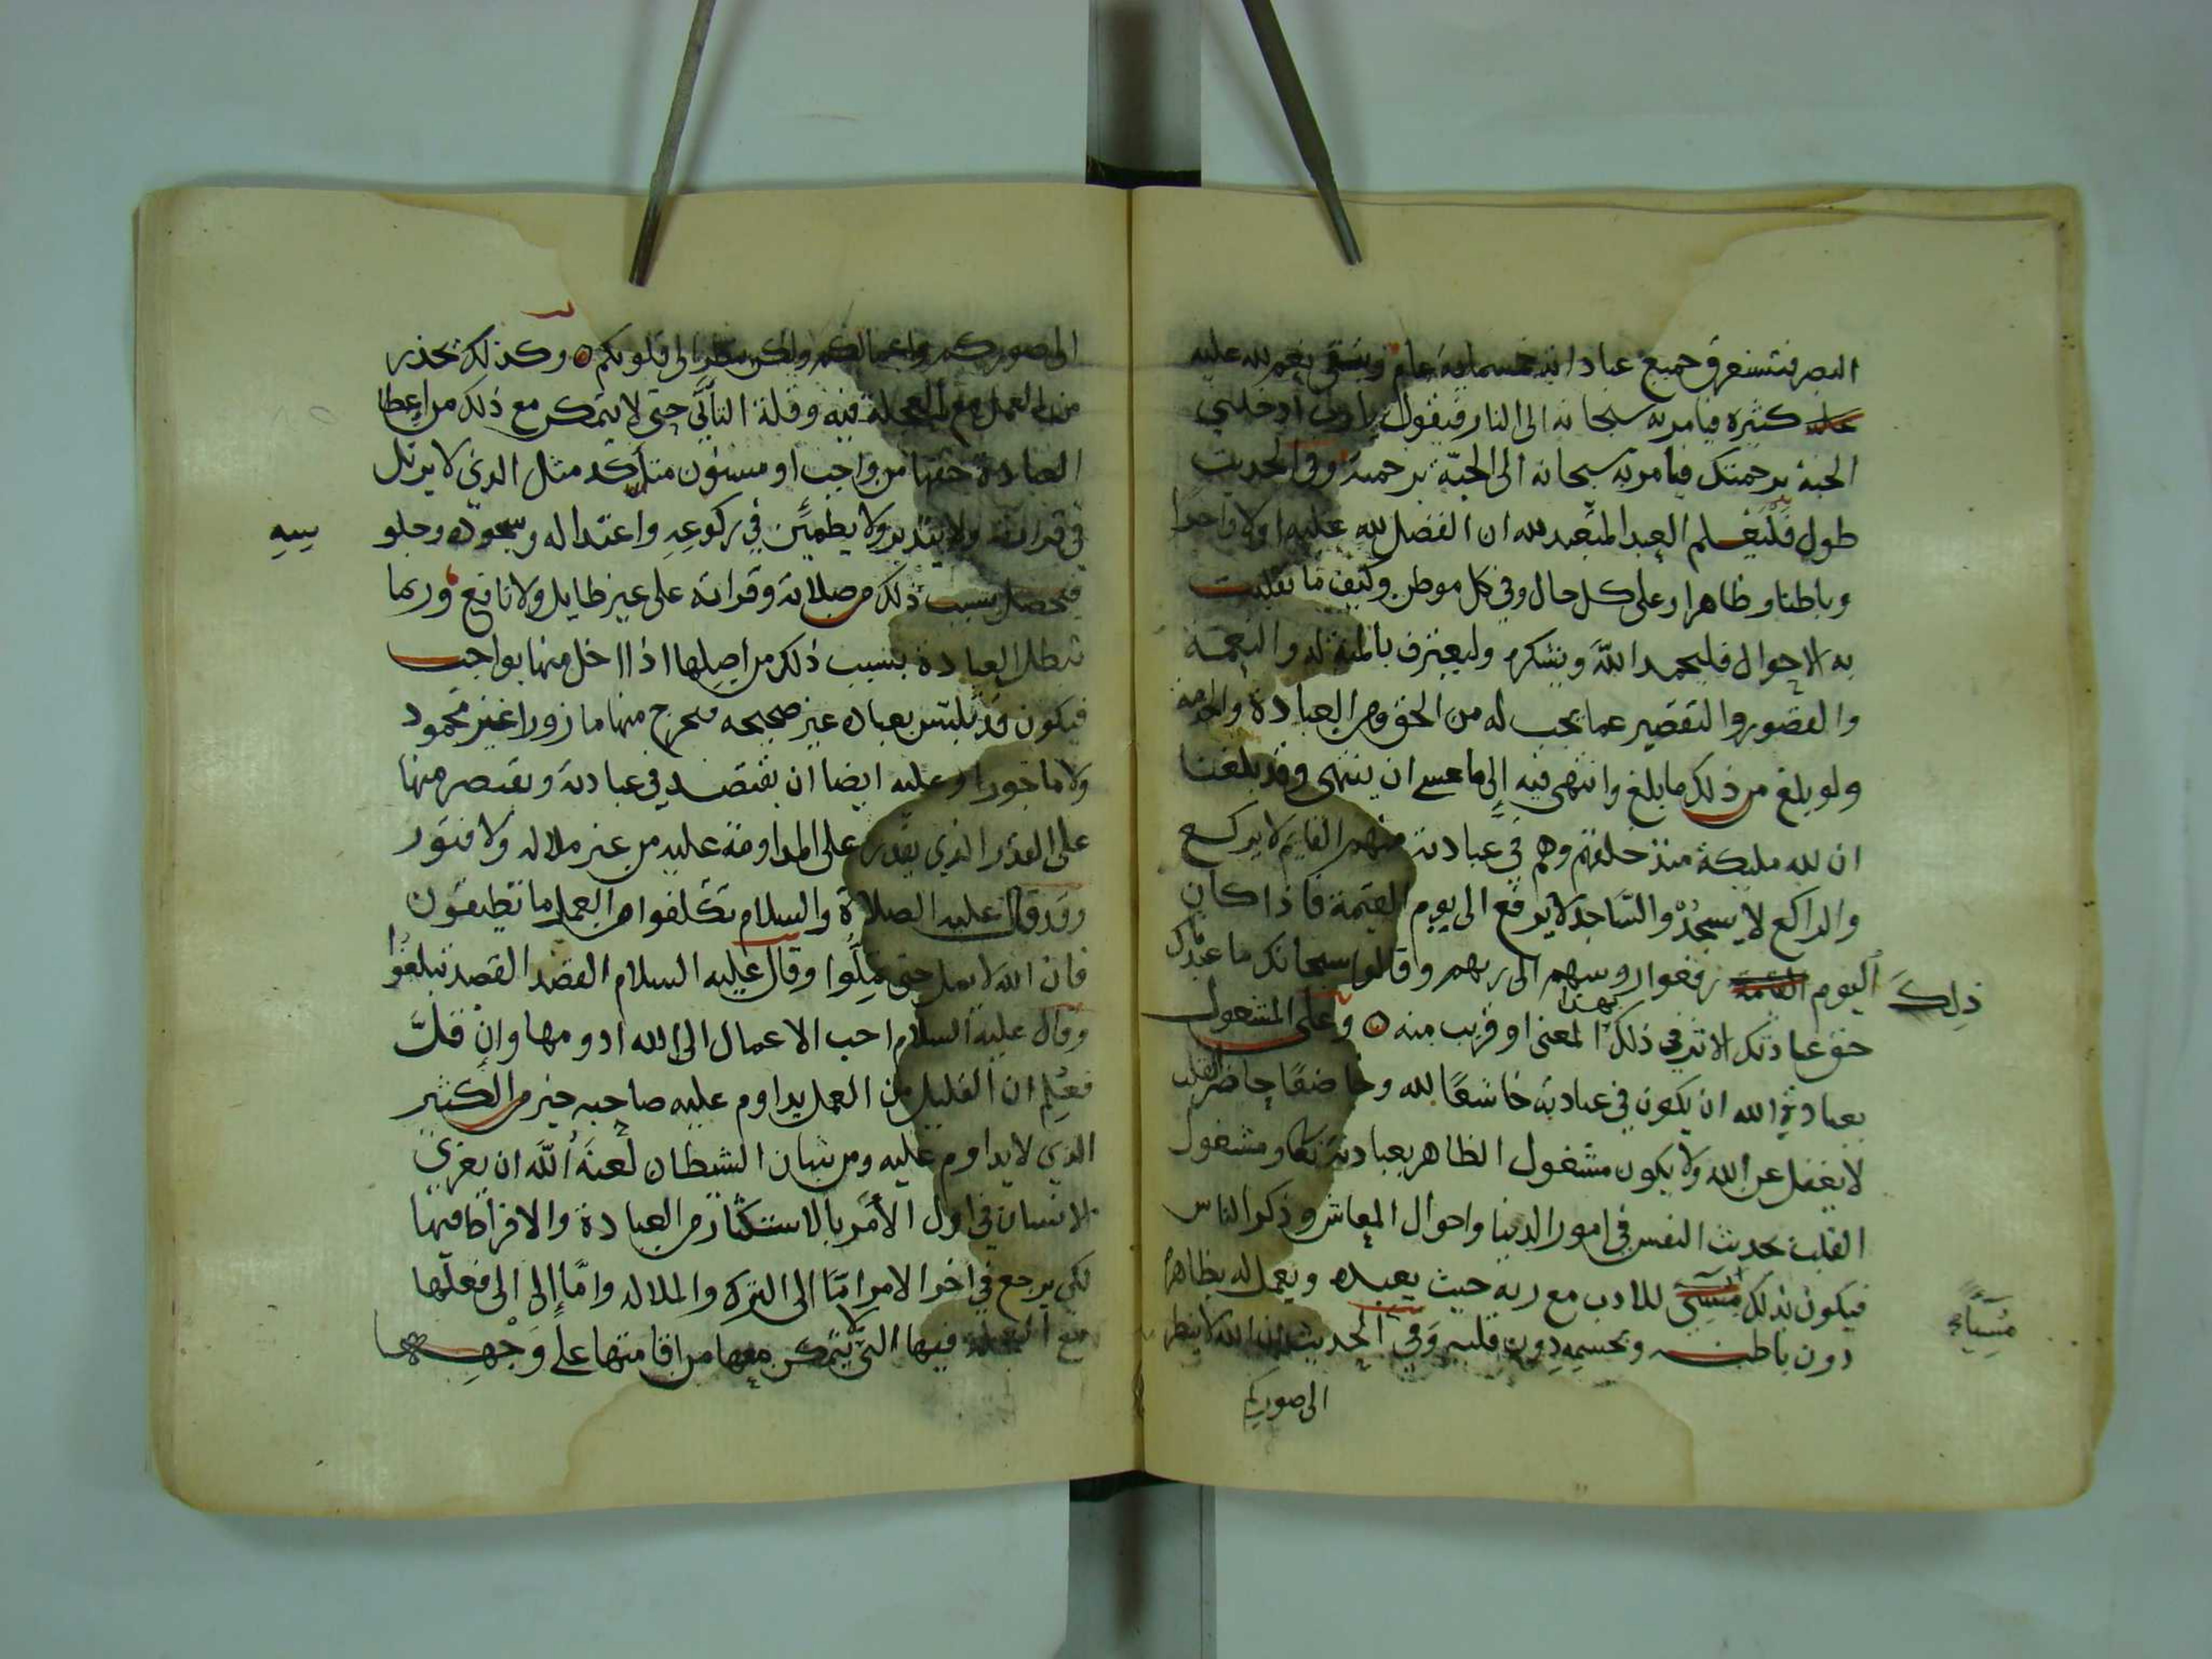 البصر فتستغرق جميع عباداته خمسماية عام وتبقى نعم لله عليه
كثيرة فيامر به سبحانه الى النار فيقول يا رب ادخلني
الجنة برحمتك فيامر به سبحانه الى الجنة برحمته وفي الحديث
طول فليعلم العبد المتعبد لله ان الفضل لله عليه اولا واخرا
وباطنا وظاهرا وعلى كل حال وفي كل موطن وكيف ما تقلبت
به الاحوال فليحمد الله ويشكره وليعترف بالمنة له والنعمة
والقصور والتقصير عما يجب له من الحق ومن العبادة
ولو بلغ من ذلك ما بلغ وانتهى فيه الى ما عسى ان ينتهى وقد بلغنا
ان لله مليكة منذ خلقهم وهم في عبادته منهم القايم لا يركع
والراكع لا يسجد والساجد لا يرفع الى يوم القيمة فاذا كان
ذلك
اليوم رفعوا روسهم الى ربهم وقالوا سبحانك ما عبدناك
حق عبادتك الاثر في ذلك بهذا المعنى او قريب منه ه وعلى المشغول
بعبادة الله ان يكون في عبادته خاشعا لله وخاضعا حاضر القلب
لا يغفل عن الله ولا يكون مشغول الظاهر بعبادته تعالى ومشغول
القلب بحديث النفس في امور الدنيا واحوال المعاش وذكر الناس
فيكون بذلك مسئ للادب مع ربه حيث يعبده ويعمل له بظاهره
مسيأ
دون باطنه وبجسمه دون قلبه وفي الحديث ان الله لا ينظر
الى صوركم
الى صوركم واعمالكم ولكن ينظر الى قلوبكم ه وكذلك يحذر
من العمل مع العجلة فيه وقلة التأني حتى لا يتمكن مع ذلك من اعطا
العبادة حقها من واجب او مسنون متأكد مثل الذي لا يرتل
في قراته ولا يتدبر ولا يطمئن في ركوعه واعتداله وسجوده وجلو
سه
فيحصل بسبب ذلك من صلاته وقراته على غير طايل ولا نافع وربما
تبطل العبادة بسبب ذلك من اصلها اذا اخل منها بواجب
فيكون قد تلبتس بعباده غير صحيحه فيخرج منها مازورا غير محمود
ولا ماجورا وعليه ايضا ان يقتصد في عبادته ويقتصر منها
على القدر الذي يقدر على المداومة عليه من غير ملاله ولا فتور
وقد قال عليه الصلاة والسلام تكلفوا من العمل ما تطيقون
فان الله لا يمل حتى تملوا وقال عليه السلام القصد القصد تبلغوا
وقال عليه السلام احب الاعمال الى الله ادومها وان قلت
فعلم ان القليل من العمل يداوم عليه صاحبه خير من الكثير
الذي لا يداوم عليه ومن شان الشيطان لعنه الله ان يغري
الانسان في اول الامر بالاستكثار من العبادة والافراط فيها
لكي يرجع في اخر الامر امّا الى الترك والملاله وامّا الى الى فعلها
مع العجلة فيها التي لا يتمكن معها من اقامتها على وجهها